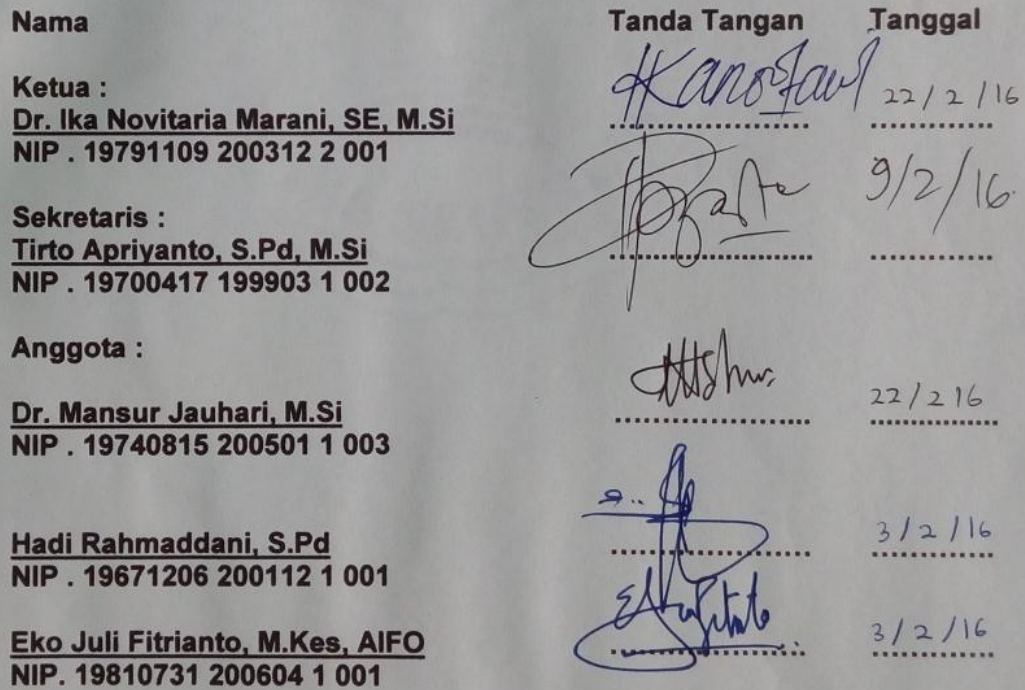 Nama Tanda Tangan Tanggal
Ketua :
Dr. Ika Novitaria Marani, SE, M.Si 22/2/16
NIP . 19791109 200312 2 001
9/2/16
Sekretaris :
Tirto Apriyanto, S.Pd, M.Si
NIP . 19700417 199903 1 002
Anggota :
Dr. Mansur Jauhari, M.Si 22/2 16
NIP . 19740815 200501 1 003
Hadi Rahmaddani, S.Pd 3/2/16
NIP . 19671206 200112 1 001
Eko Juli Fitrianto, M.Kes, AIFO 3/2/16
NIP. 19810731 200604 1 001